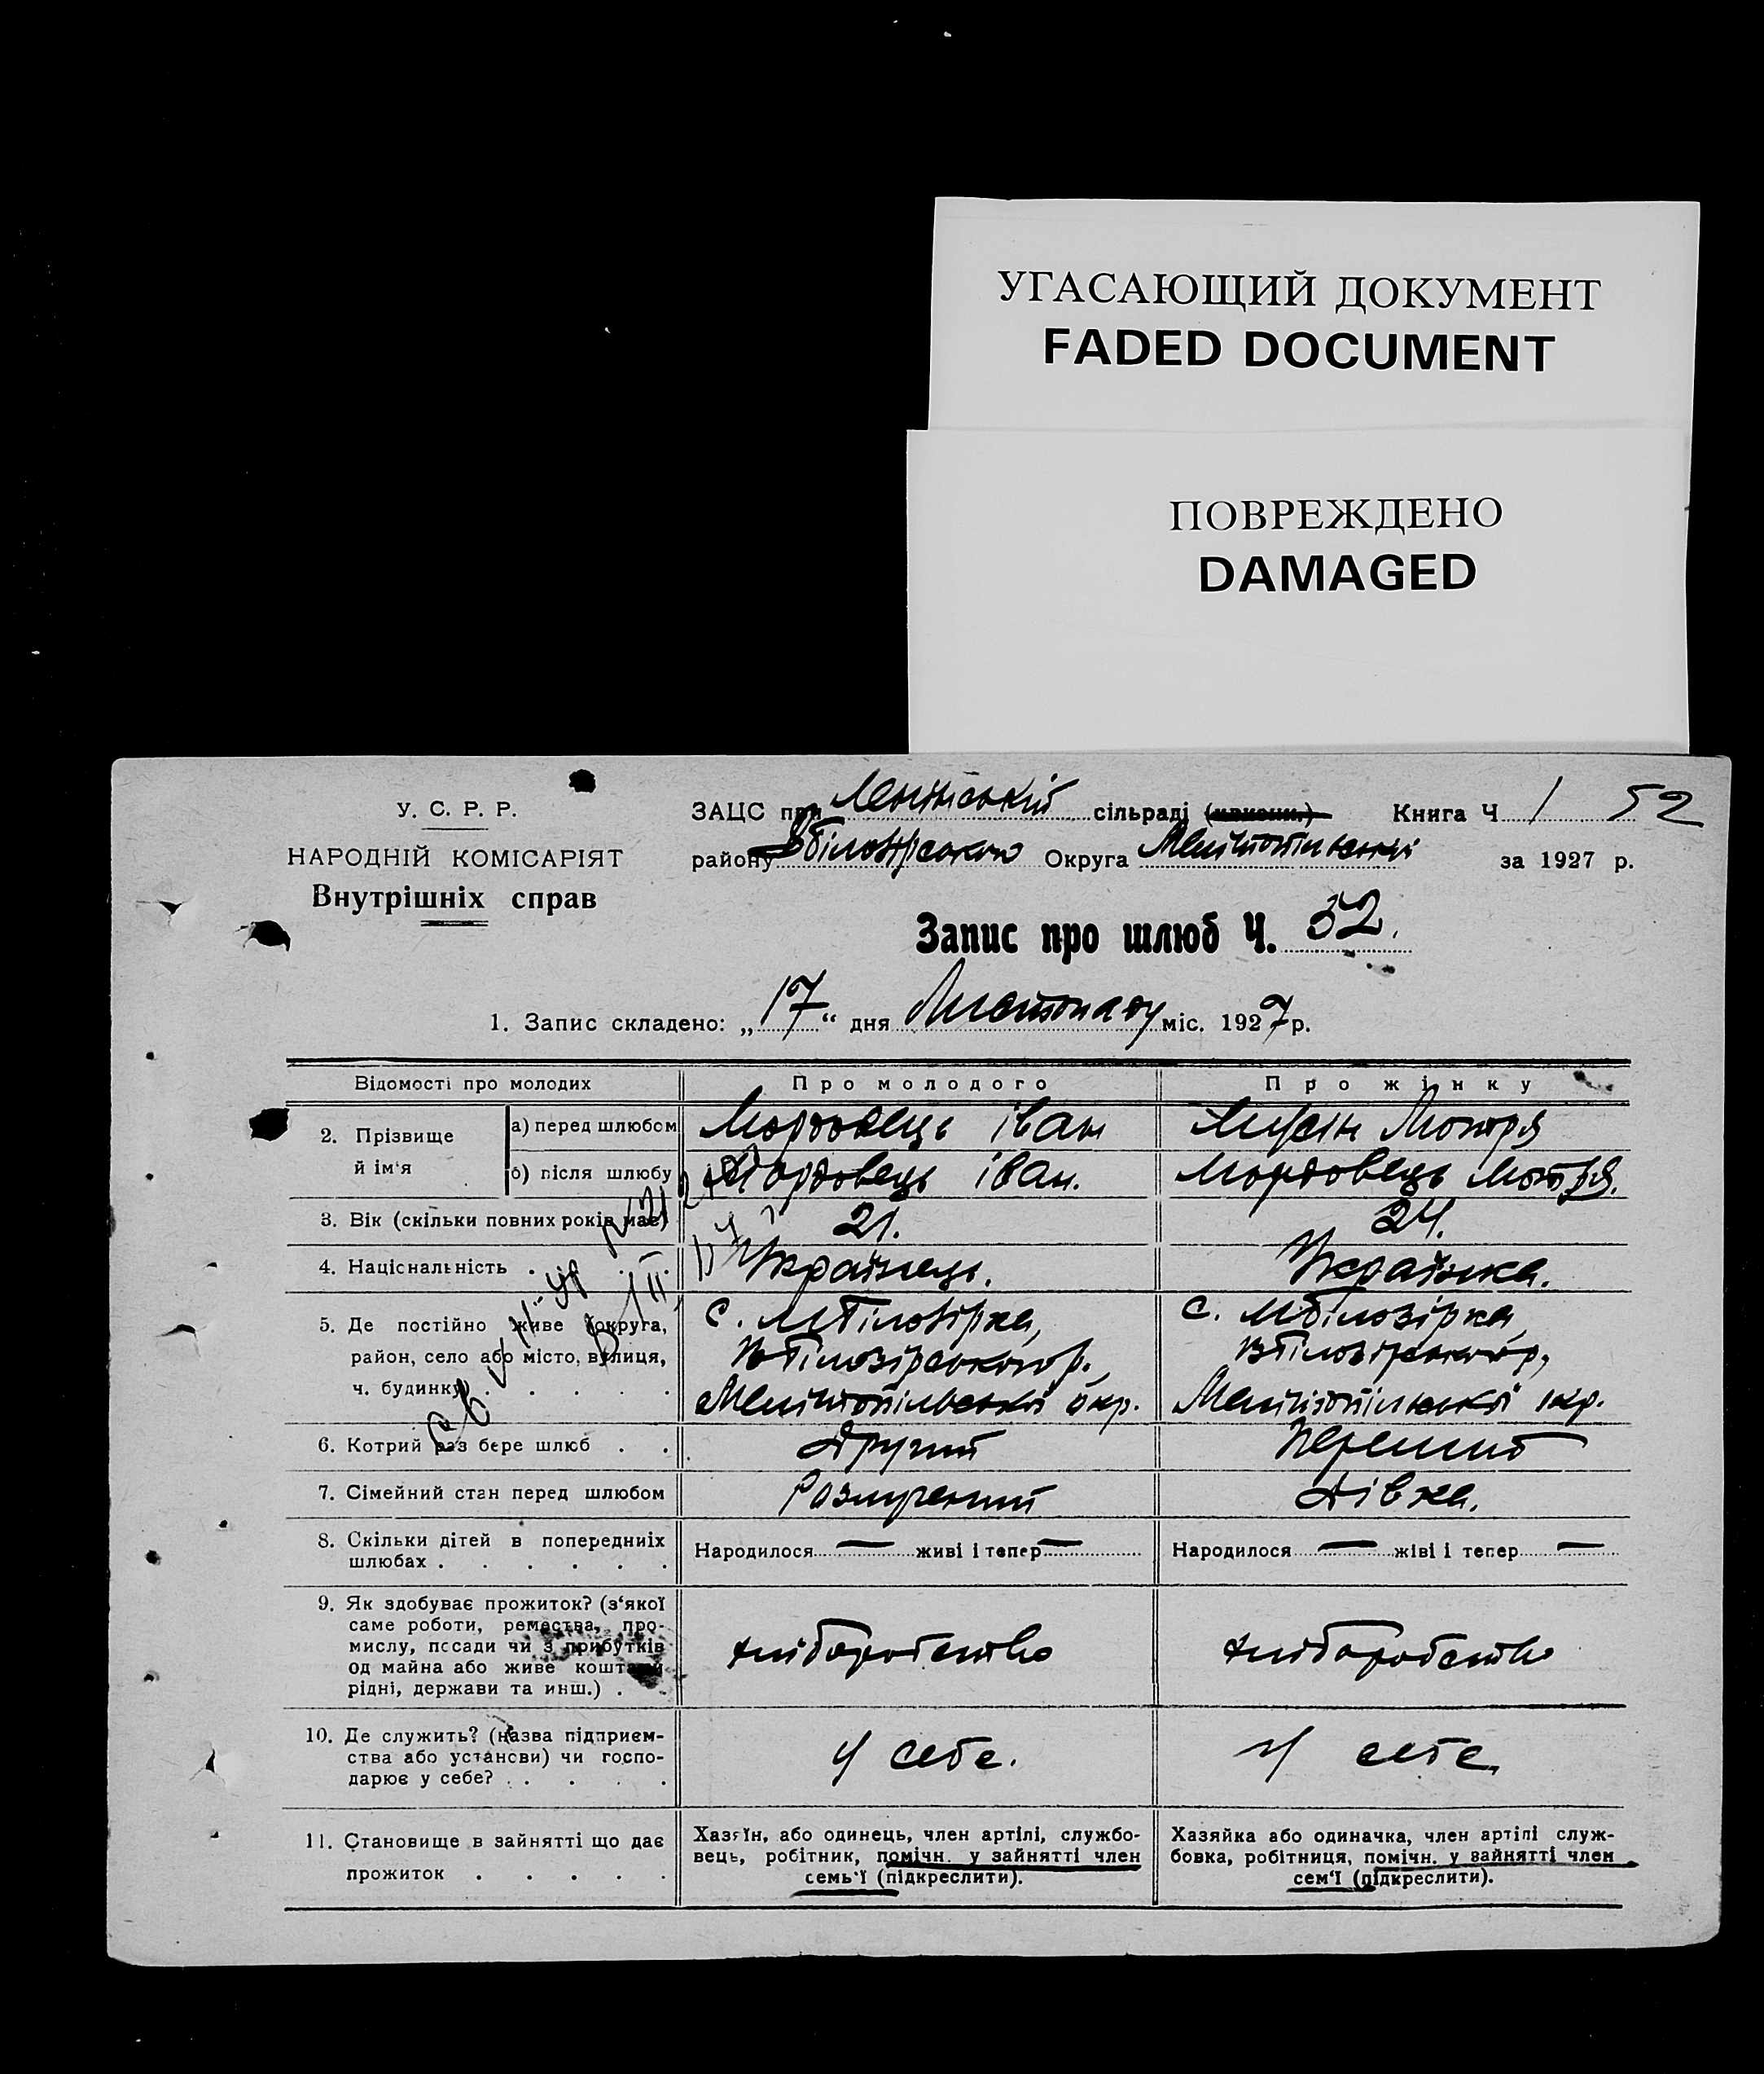 УГАСАЮЩИЙ ДОКУМЕНТ
FADED DOCUMENT
ПОВРЕЖДЕНО
DAMAGED
У. С. Р. Р.
НАРОДНІЙ КОМІСАРІЯТ
Внутрішніх справ
ЗАЦС при Ленінській сільраді Книга Ч 1 52
району Вбілозірського Округа Мелітопільської за 1927 р.
Запис про шлюб Ч. 52.
1. Запис складено: „17“ дня Листопаду міс. 1927 р.
Відомості про молодих Про молодого Про жінку
2. Прізвище й ім‘я
а) перед шлюбом Мордовець іван Мотря
б) після шлюбу Мордовець іван. Мордовець Мотря.
3. Вік (скільки повних років має) 21. 24.
4. Національність . . . . Українець. Українка.
5. Де постійно живе (округа, с. МБілозірка, с. Мбілозірка,
район, село або місто, вулиця, ВБілозірського р, ВБілозірського р,
ч. будинку) . . . . . Мелітопільської окр. Мелітопільської окр.
6. Котрий раз бере шлюб . . Другий Перший
7. Сімейний стан перед шлюбом Дівка.
8. Скільки дітей в попередниіх Народилося — живі і тепер — Народилося — жіві і тепер —
шлюбах . . . . . .
9. Як здобуває прожиток? (з‘якої
саме роботи, ремества, про-
мислу, посади чи з прибутків хліборобство хліборобство
од майна або живе коштами
рідні, держави та инш.) . .
10. Де служить? (назва підприєм-
ства або установи) чи госпо- У себе. У себе.
дарює у себе? . . . . .
11. Становище в зайнятті що дає
прожиток . . . . .
Хазяїн, або одинець, член артілі, службо-
вець, робітник, помічн. у зайнятті член
семь‘ї (підкреслити).
Хазяйка або одиначка, член артілі служ-
бовка, робітниця, помічн. у зайнятті член
сем‘ї (підкреслити).